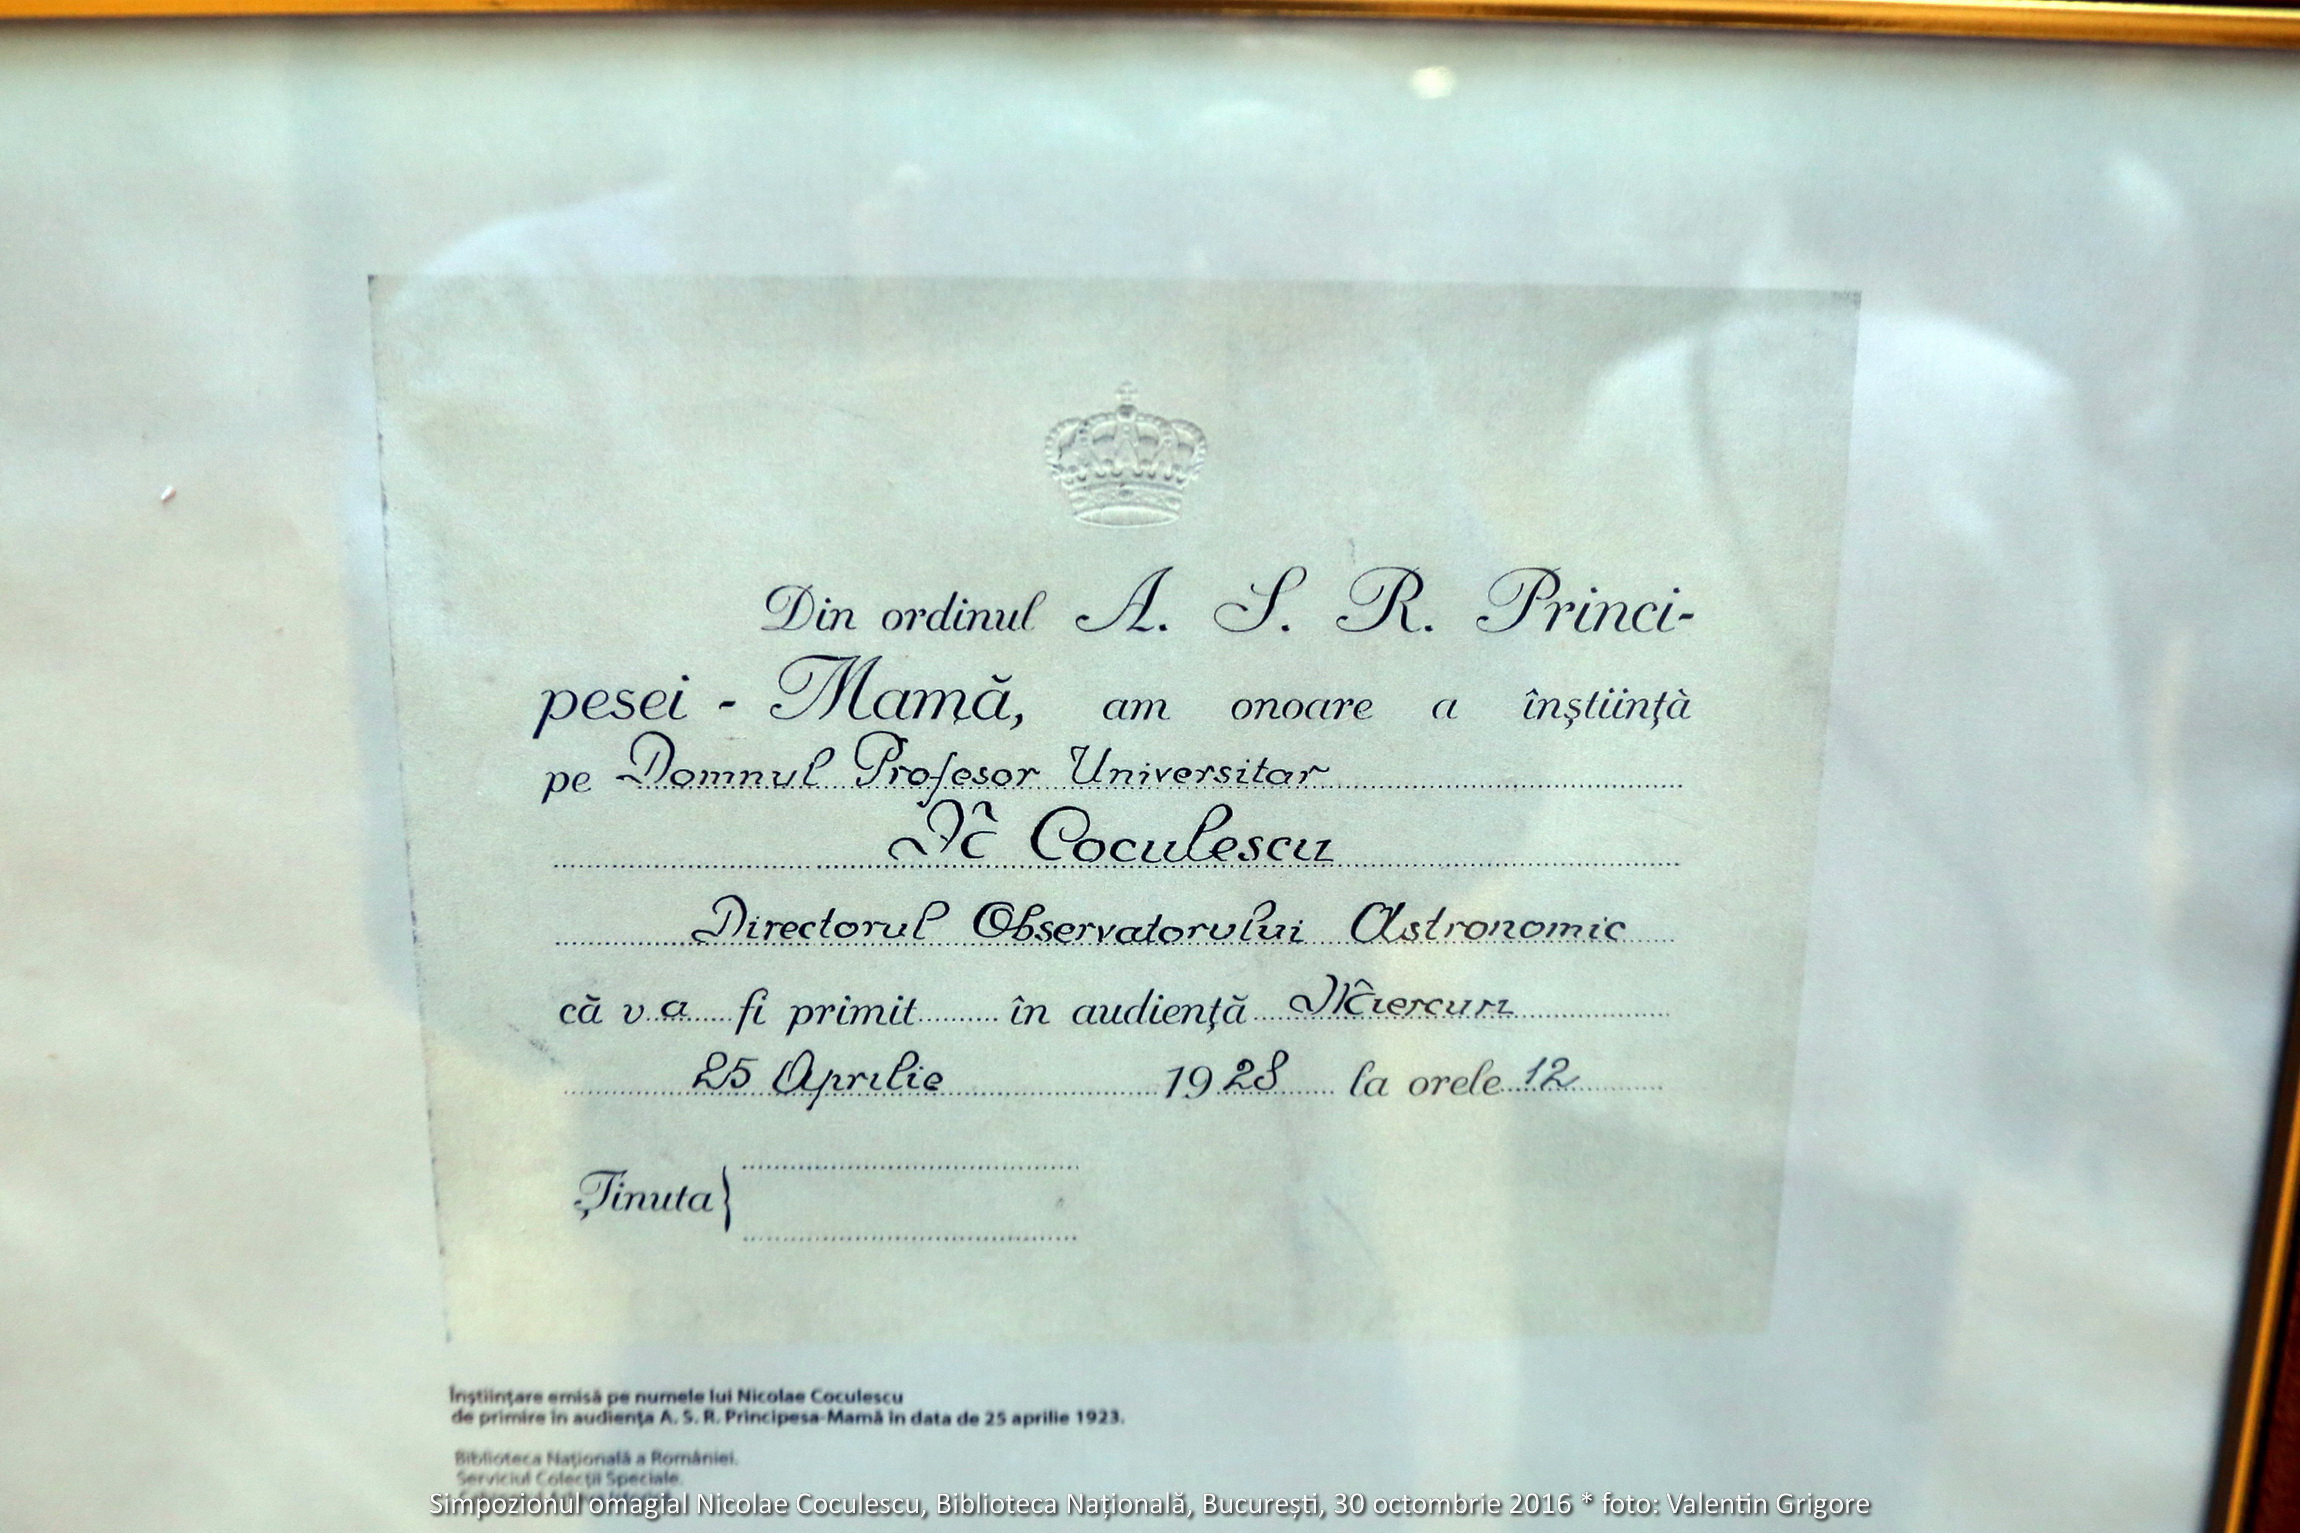 Din ordinul A. S. R. Princi-
pesei - Mamă, am onoare a înştiinţà
pe Domnul Profesor Universitar
N. Coculescu
Directorul Observatorului Astronomic
că va fi primit în audienţă Miercuri
25 Aprilie 1928 la orele 12
Ţinuta
Înştiinţare emisă pe numele lui Nicolae Coculescu
de primire în audienţa A. S. R. Principesa-Mamă în data de 25 aprilie 1923.
Biblioteca Naţională a României.
Serviciul Colecţii Speciale.
Simpozionul omagial Nicolae Coculescu, Biblioteca Națională, București, 30 octombrie 2016 * foto: Valentin Grigore